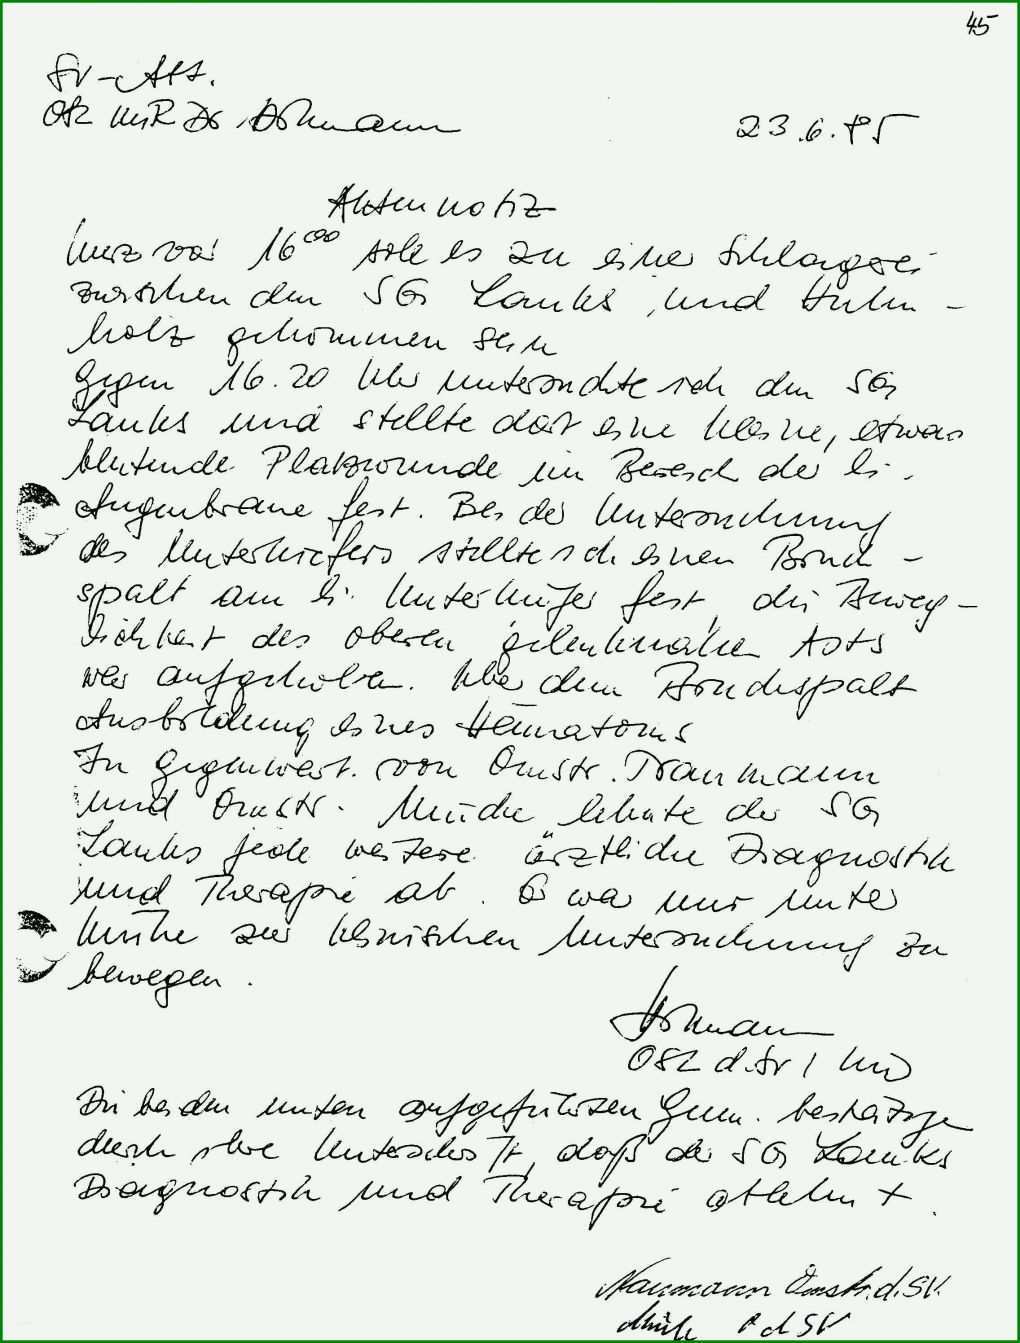 45
SV-Abt.
OSL MR Dr
23.6.85
Aktennotiz
Kurz vor 16⁰⁰ soll es zu einer Schlägerei
zwischen den SG Lauks und Kuhn-
holz gekommen sein
Gegen 16.20 Uhr untersuchte ich den SG
Lauks und stellte dort eine kleine, etwas
blutende Platzwunde im Bereich der li.
Augenbraue fest. Bei der Untersuchung
des Unterkiefers stellte ich einen Bruch-
spalt am li. Unterkiefer fest, die Beweg-
lichkeit des oberen gelenknahen Asts
war aufgehoben. Über dem Bruchspalt
Ausbildung eines Hämatoms
In Gegenwart von Omstr. Naumann
und Omstr. Mücke lehnte der SG
Lauks jede weitere ärztliche Diagnostik
und Therapie ab. Er war nur unter
Mühe zur klinischen Untersuchung zu
bewegen.
OSL d. SV /
Die beiden unten aufgeführten Genn. bestätigen
durch ihre Unterschrift, daß der SG Lauks
Diagnostik und Therapie ablehnt.
Naumann Omstr. d. SV.
d SV